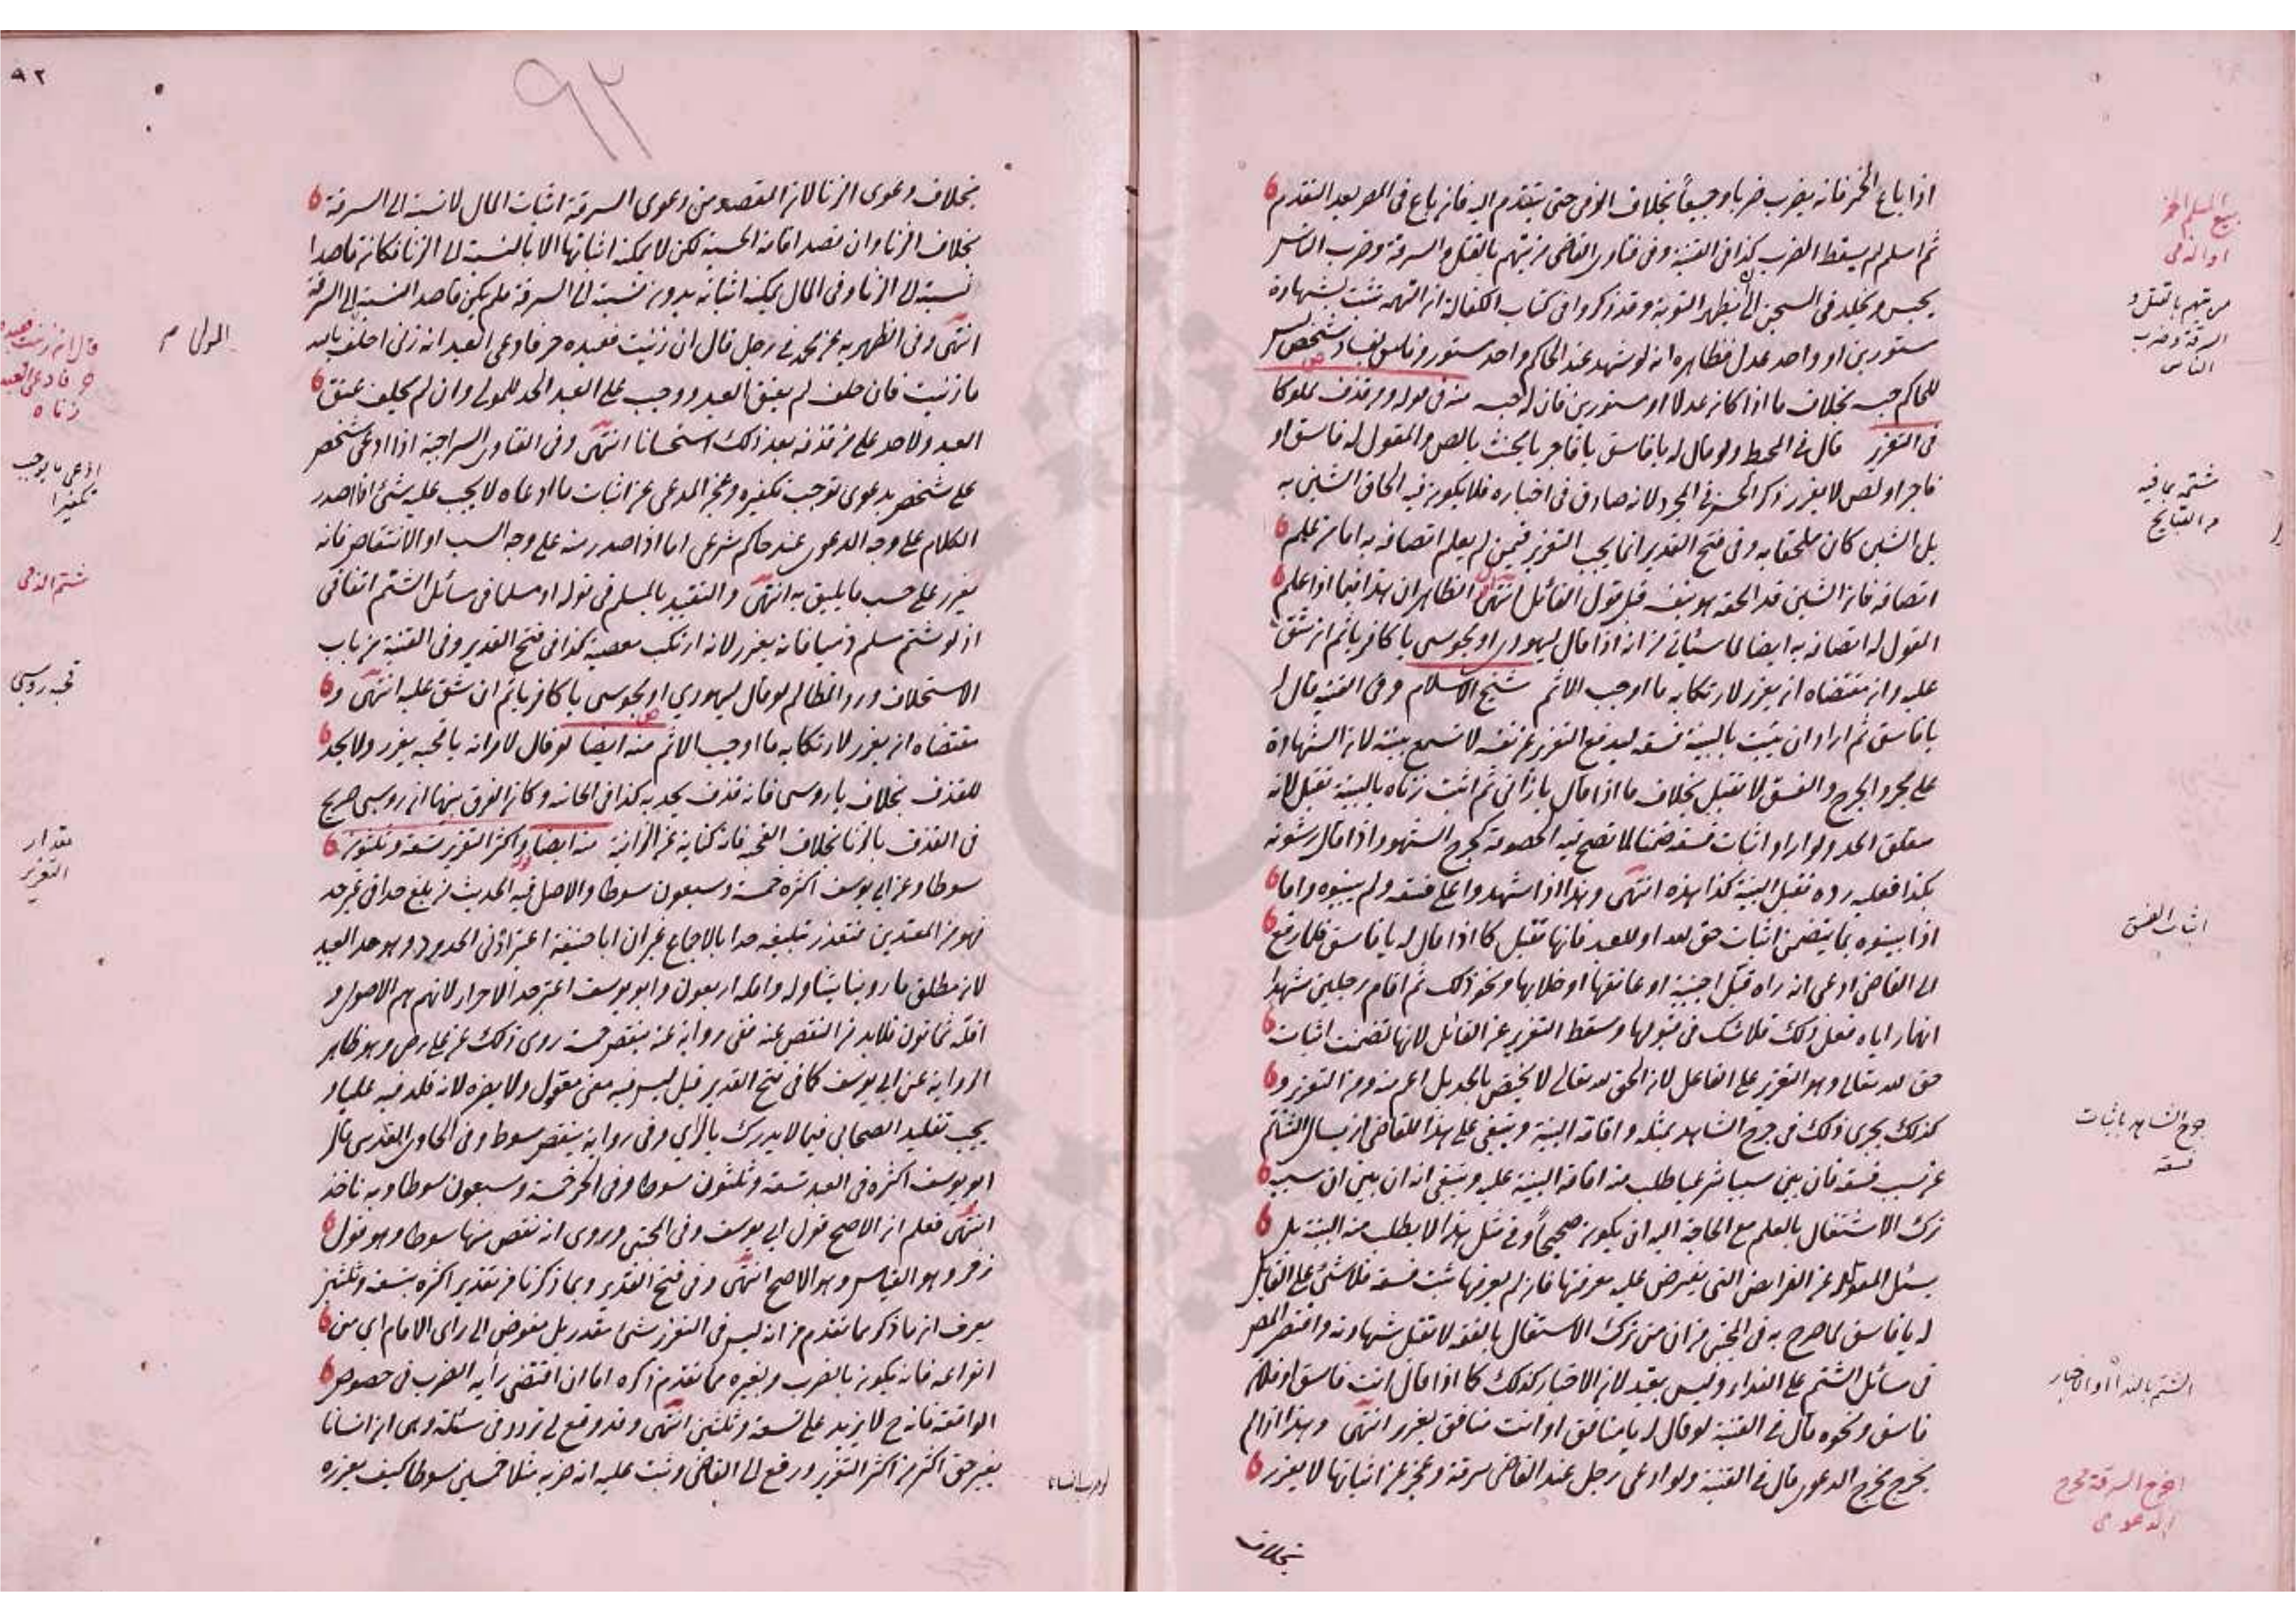 اذا باع الخمر فانه يضرب ضربا وجيعاً بخلاف الذمى حتى يتقدم اليه فان باع فى المصر بعد التقدم
ثم اسلم لم يسقط الضرب كذا فى القنية وفى فتاوى القاضى من يتهم بالقتل والسرقة وضرب الناس
يحبس ويخلد فى السجن الى ان يظهر التوبة وقد ذكروا فى كتاب الكفالة ان التهمة تثبت بشهادة
مستورين او واحد عدل فظاهره انه لو شهد عند الحاكم واحد مستور وفاسق بفساد شخص ليس
للحاكم حبسه بخلاف ما اذا كان عدلا او مستورين فان له حبسه منه فى قوله ومن قذف مملوكا
فى التعزير قال فى المحيط ولو قال له يا فاسق يا فاجر يا مخنث يا لص والمقول له فاسق او
فاجر او لص لا يعزر ذكر الحسن فى المجرد لانه صادق فى اخباره فلا يكون فيه الحاق الشين به
بل الشين كان ملحقا به وفى فتح القدير انما يجب التعزير فيمن لم يعلم اتصافه به اما من علم
اتصافه فان الشين قد الحقه هو بنفسه قبل قول القائل انتهى الظاهر ان هذا فيما اذا علم
المقول له اتصافه به ايضا لما سيأتى من انه اذا قال ليهودى او مجوسى يا كافر ياثم ان شق
عليه وان مقتضاه انه يعزر لارتكابه ما اوجب الاثم شيخ الاسلام وفى القنية قال له
يا فاسق ثم اراد ان يثبت بالبينة فسقه ليدفع التعزير عن نفسه لا تسمع بينته لان الشهادة
على مجرد الجرح والفسق لا تقبل بخلاف ما اذا قال يا زانى ثم اثبت زناه بالبينة تقبل لانه
متعلق الحد ولو اراد اثبات فسقه ضمنا لما تصح فيه الخصومة كجرح الشهود واذا قال رشوته
بكذا فعليه رده تقبل البينة كذا هذه انتهى وهذا اذا شهدوا على فسقه ولم يبينوه واما
اذا بينوه بما يتضمن اثبات حق لله او للعبد فانها تقبل كما اذا قال له يا فاسق فلما رفع
الى القاضى ادعى انه راه قبل اجنبية او عانقها او خلا بها ونحو ذلك ثم اقام رجلين شهدا
انهما راياه فعل ذلك فلا شك فى قبولها وسقط التعزير عن القائل لانها تضمنت اثبات
حق لله تعالى وهو التعزير على الفاعل لان الحق لله تعالى لا يختص بالحد بل اعم منه ومن التعزير و
كذلك يجرى ذلك فى جرح الشاهد بمثله واقامة البينة وينبغى على هذا للقاضى ان يسال الشاتم
عن سبب فسقه فان بين سببا شرعيا طلب منه اقامة البينة عليه وينبغى انه ان بين ان سببه
ترك الاشتغال بالعلم مع الحاجة اليه ان يكون صحيحاً وفى مثل هذا لا يطلب منه البينة بل
يسئل المقول له عن الفرايض التى يفترض عليه معرفتها فان لم يعرفها ثبت فسقه فلا شئ على القائل
له يا فاسق لما صرح به فى المجتبى من ان من ترك الاشتغال بالفقه لا تقبل شهادته واقتصر المص
فى مسائل الشتم على النداء وليس بقيد لان الاخبار كذلك كما اذا قال انت فاسق او فلان
فاسق ونحوه قال فى القنية لو قال له يا منافق او انت منافق يعزر انتهى وهذا اذا لم
يخرج مخرج الدعوى قال فى القنية ولو ادعى رجل عند القاضى سرقة وعجز عن اثباتها لا يعزر
بخلاف
بيع المسلم الخمر
او الذمى
من يتهم بالقتل و
السرقة وضرب
الناس
شتمه بما فيه
من القبايح
اثبات الفسق
جرح الشاهد باثبات
فسقه
الشتم بالنداء او الاخبار
اخرج السرقة مخرج
الدعوى
٩٢
٩٢
بخلاف دعوى الزنا لان المقصود من دعوى السرقة اثبات المال لا نسبته الى السرقة
بخلاف الزنا وان قصد اقامة الحسبة لكن لا يمكنه اثباتها الا بالنسبة الى الزنا فكان قاصدا
نسبته الى الزنا وفى المال يمكنه اثباته بدون نسبته الى السرقة فلم يكن قاصدا النسبة الى السرقة
انتهى وفى الظهيريه عن محمد فى رجل قال ان زنيت فعبده حر فادعى العبد انه زنى احلف بالله
ما زنيت فان حلف لم يعتق العبد ووجب على العبد الحد للمولى وان لم يحلف عتق
العبد ولا حد على من قذفه بعد ذلك استحسانا انتهى وفى الفتاوى السراجية اذا ادعى شخص
على شخص بدعوى توجب تكفيره وعجز المدعى عن اثبات ما ادعاه لا يجب عليه شئ اذا صدر
الكلام على وجه الدعوى عند حاكم شرعى اما اذا صدر منه على وجه السب او الانتقاص فانه
يعزر على حسب ما يليق به انتهى والتقييد بالمسلم فى قوله او مسلما فى مسائل الشتم اتفاقى
اذ لو شتم مسلم ذميا فانه يعزر لانه ارتكب معصية كذا فى فتح القدير وفى القنية من باب
الاستحلال ورد المظالم لو قال ليهودي او مجوسى يا كافر ياثم ان شق عليه انتهى و
مقتضاه انه يعزر لارتكابه ما اوجب الاثم منه ايضا لو قال لامرأته يا قحبه يعزر ولا يحد
للقذف بخلاف يا روسى فانه قذف يحد به كذا فى الخانيه وكان الفرق بينهما ان روسى صريح
فى القذف بالزنا بخلاف القحبه فانه كناية عن الزانية منه ايضا واكثر التعزير تسعة وثلثون
سوطا وعن ابى يوسف اكثره خمسة وسبعون سوطا والاصل فيه الحديث من بلغ حدا فى غير حد
فهو من المعتدين فتعذر تبليغه حدا بالاجماع غير ان ابا حنيفة اعتبر ادنى الحدود وهو حد العبد
لان مطلق ما روينا يتناوله واقله اربعون وابو يوسف اعتبر حد الاحرار لانهم هم الاصول و
اقله ثمانون فلابد من النقص عنه ففى رواية عنه ينقص خمسة روى ذلك عن على رض وهو ظاهر
الرواية عن ابى يوسف كما فى فتح القدير قيل ليس فيه معنى معقول ولا يضره لانه قلد فيه عليا و
يجب تقليد الصحابى فيما لا يدرك بالرأي وفى رواية ينقص سوط وفى الحاوى القدسى قال
ابو يوسف اكثره فى العبد تسعة وثلثون سوطا وفى الحر خمسة وسبعون سوطا وبه ناخذ
انتهى فعلم ان الاصح قول ابى يوسف وفى المجتبى وروى انه ينقص منها سوطا وهو قول
زفر وهو القياس وهو الاصح انتهى وفى فتح القدير وبما ذكرنا من تقدير اكثره بتسعة وثلثين
يعرف ان ما ذكر مما تقدم من انه ليس فى التعزير شئ مقدر بل مفوض الى راى الامام اي من
انواعه فانه يكون بالضرب وبغيره مما تقدم ذكره اما ان اقتضى رأيه الضرب فى خصوص
الواقعة فانه ح لا يزيد على تسعة وثلثين انتهى وقد وقع لى تردد فى مسئلة وهى ان انسانا
بغير حق اكثر من اكثر التعزير ورفع الى القاضى وثبت عليه انه ضربه مثلا خمسين سوطا كيف يعزره
المولى م
قال ان زنيت فعبده
حر فادعى العبد
زناه
ادعى بما يوجب
تكفيرا
شتم الذمى
قحبه روسى
مقدار
التعزير
لو ضرب انسانا